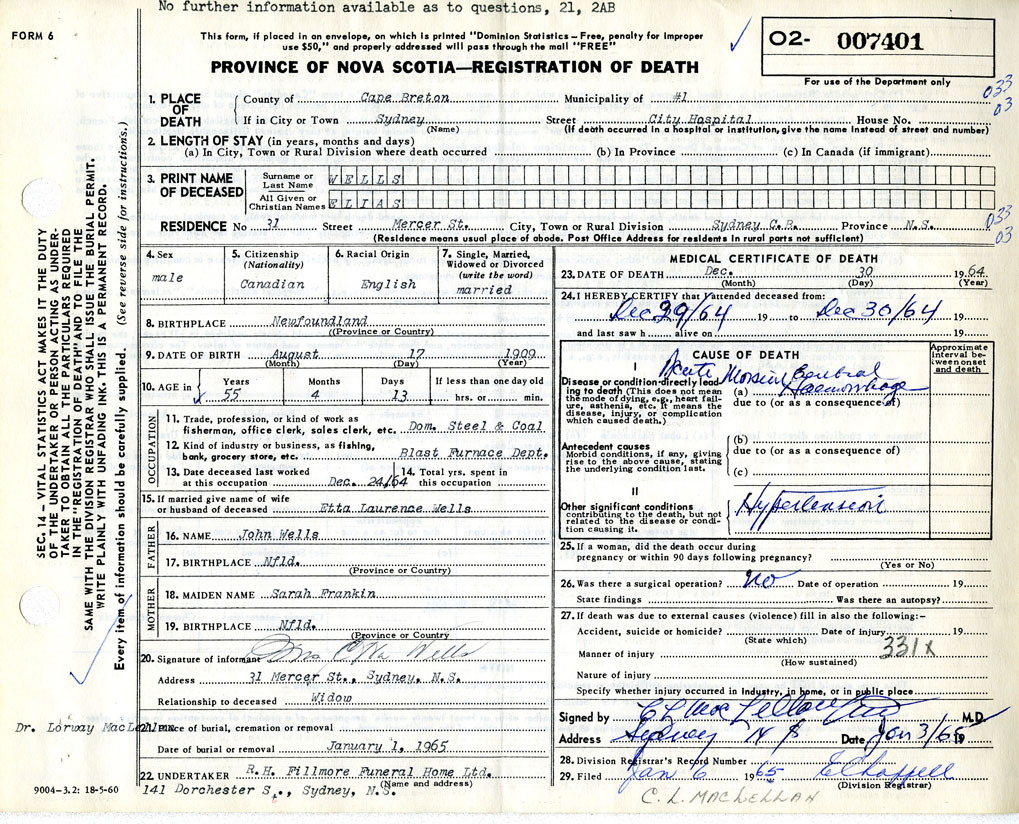 No further information available as to questions, 21, 2AB
FORM 6
This form, if placed in an envelope, on which is printed "Dominion Statistics – Free, penalty for improper
use $50," and properly addressed will pass through the mail "FREE"
02- 007401
For use of the Department only
PROVINCE OF NOVA SCOTIA—REGISTRATION OF DEATH
033
03
1. PLACE OF DEATH
County of Cape Breton Municipality of #1
If in City or Town Sydney Street City Hospital House No.
(Name) (If death occurred in a hospital or institution, give the name instead of street and number)
2. LENGTH OF STAY (in years, months and days)
(a) In City, Town or Rural Division where death occurred (b) In Province (c) In Canada (if immigrant)
3. PRINT NAME OF DECEASED
Surname or Last Name WELLS
All Given or Christian Names ELIAS
033
03
RESIDENCE No 31 Street Mercer St. City, Town or Rural Division Sydney C.B. Province N.S.
(Residence means usual place of abode. Post Office Address for residents in rural parts not sufficient)
4. Sex male
5. Citizenship (Nationality) Canadian
6. Racial Origin English
7. Single, Married, Widowed or Divorced (write the word) married
8. BIRTHPLACE Newfoundland
(Province or Country)
9. DATE OF BIRTH August 17 1909
(Month) (Day) (Year)
10. AGE in Years 55 Months 4 Days 13 If less than one day old hrs. or min.
OCCUPATION
11. Trade, profession, or kind of work as
fisherman, office clerk, sales clerk, etc. Dom. Steel & Coal
12. Kind of industry or business, as fishing,
bank, grocery store, etc. Blast Furnace Dept.
13. Date deceased last worked at this occupation Dec. 24/64
14. Total yrs. spent in this occupation
15. If married give name of wife
or husband of deceased Etta Laurence Wells
FATHER
16. NAME John Wells
17. BIRTHPLACE Nfld.
(Province or Country)
MOTHER
18. MAIDEN NAME Sarah Frankin
19. BIRTHPLACE Nfld.
(Province or Country
20. Signature of informant Mrs Etta Wells
Address 31 Mercer St., Sydney, N.S.
Relationship to deceased Widow
Dr. Lorway MacLellan
21. Place of burial, cremation or removal
Date of burial or removal January 1, 1965
22. UNDERTAKER R.H. Fillmore Funeral Home Ltd.
(Name and address)
141 Dorchester S., Sydney, N.S.
9004-3.2: 18-5-60
MEDICAL CERTIFICATE OF DEATH
23. DATE OF DEATH Dec. 30 1964
(Month) (Day) (Year)
24. I HEREBY CERTIFY that I attended deceased from:
Dec 29/64 19 to Dec 30/64 19
and last saw h alive on 19
CAUSE OF DEATH
Approximate interval between onset and death
I
Disease or condition directly leading to death (This does not mean the mode of dying, e.g., heart failure, asthenia, etc. It means the disease, injury, or complication which caused death.)
Acute Massive Cerebral
(a) Haemorrhage
due to (or as a consequence of)
Antecedent causes
Morbid conditions, if any, giving rise to the above cause, stating the underlying condition last.
(b)
due to (or as a consequence of)
(c)
II
Other significant conditions
contributing to the death, but not related to the disease or condition causing it.
Hypertension
25. If a woman, did the death occur during
pregnancy or within 90 days following pregnancy?
(Yes or No)
26. Was there a surgical operation? No Date of operation 19
State findings Was there an autopsy?
27. If death was due to external causes (violence) fill in also the following:—
Accident, suicide or homicide? Date of injury 19
(State which)
331X
Manner of injury
(How sustained)
Nature of injury
Specify whether injury occurred in industry, in home, or in public place
Signed by C L MacLellan M.D.
Address Sydney N S Date Jan 3/65 19
28. Division Registrar's Record Number
29. Filed Jan 6 1965 E Chappell
(Division Registrar)
C. L. MACLELLAN
SEC. 14 – VITAL STATISTICS ACT MAKES IT THE DUTY
OF THE UNDERTAKER OR PERSON ACTING AS UNDER-
TAKER TO OBTAIN ALL THE PARTICULARS REQUIRED
IN THE "REGISTRATION OF DEATH" AND TO FILE THE
SAME WITH THE DIVISION REGISTRAR WHO SHALL ISSUE THE BURIAL PERMIT.
WRITE PLAINLY WITH UNFADING INK. THIS IS A PERMANENT RECORD.
Every item of information should be carefully supplied. (See reverse side for instructions.)